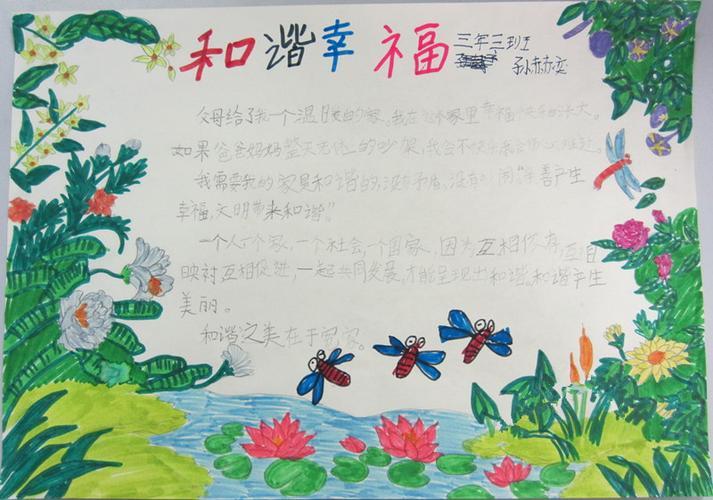 和谐幸福 三年三班
孙
父母给了我一个温暖的家。我在这个家里幸福快乐的长大。
如果爸爸妈妈整天无休的吵架,我会不快乐我会伤心难过。
我需要我的家是和谐的,没有矛盾,没有 "友善产生
幸福,文明带来和谐"。
一个人,一个家,一个社会,一个国家,因为互相依存,互相
映衬互相促进,一起共同发展,才能呈现出和谐。和谐产生
美丽。
和谐之美在于